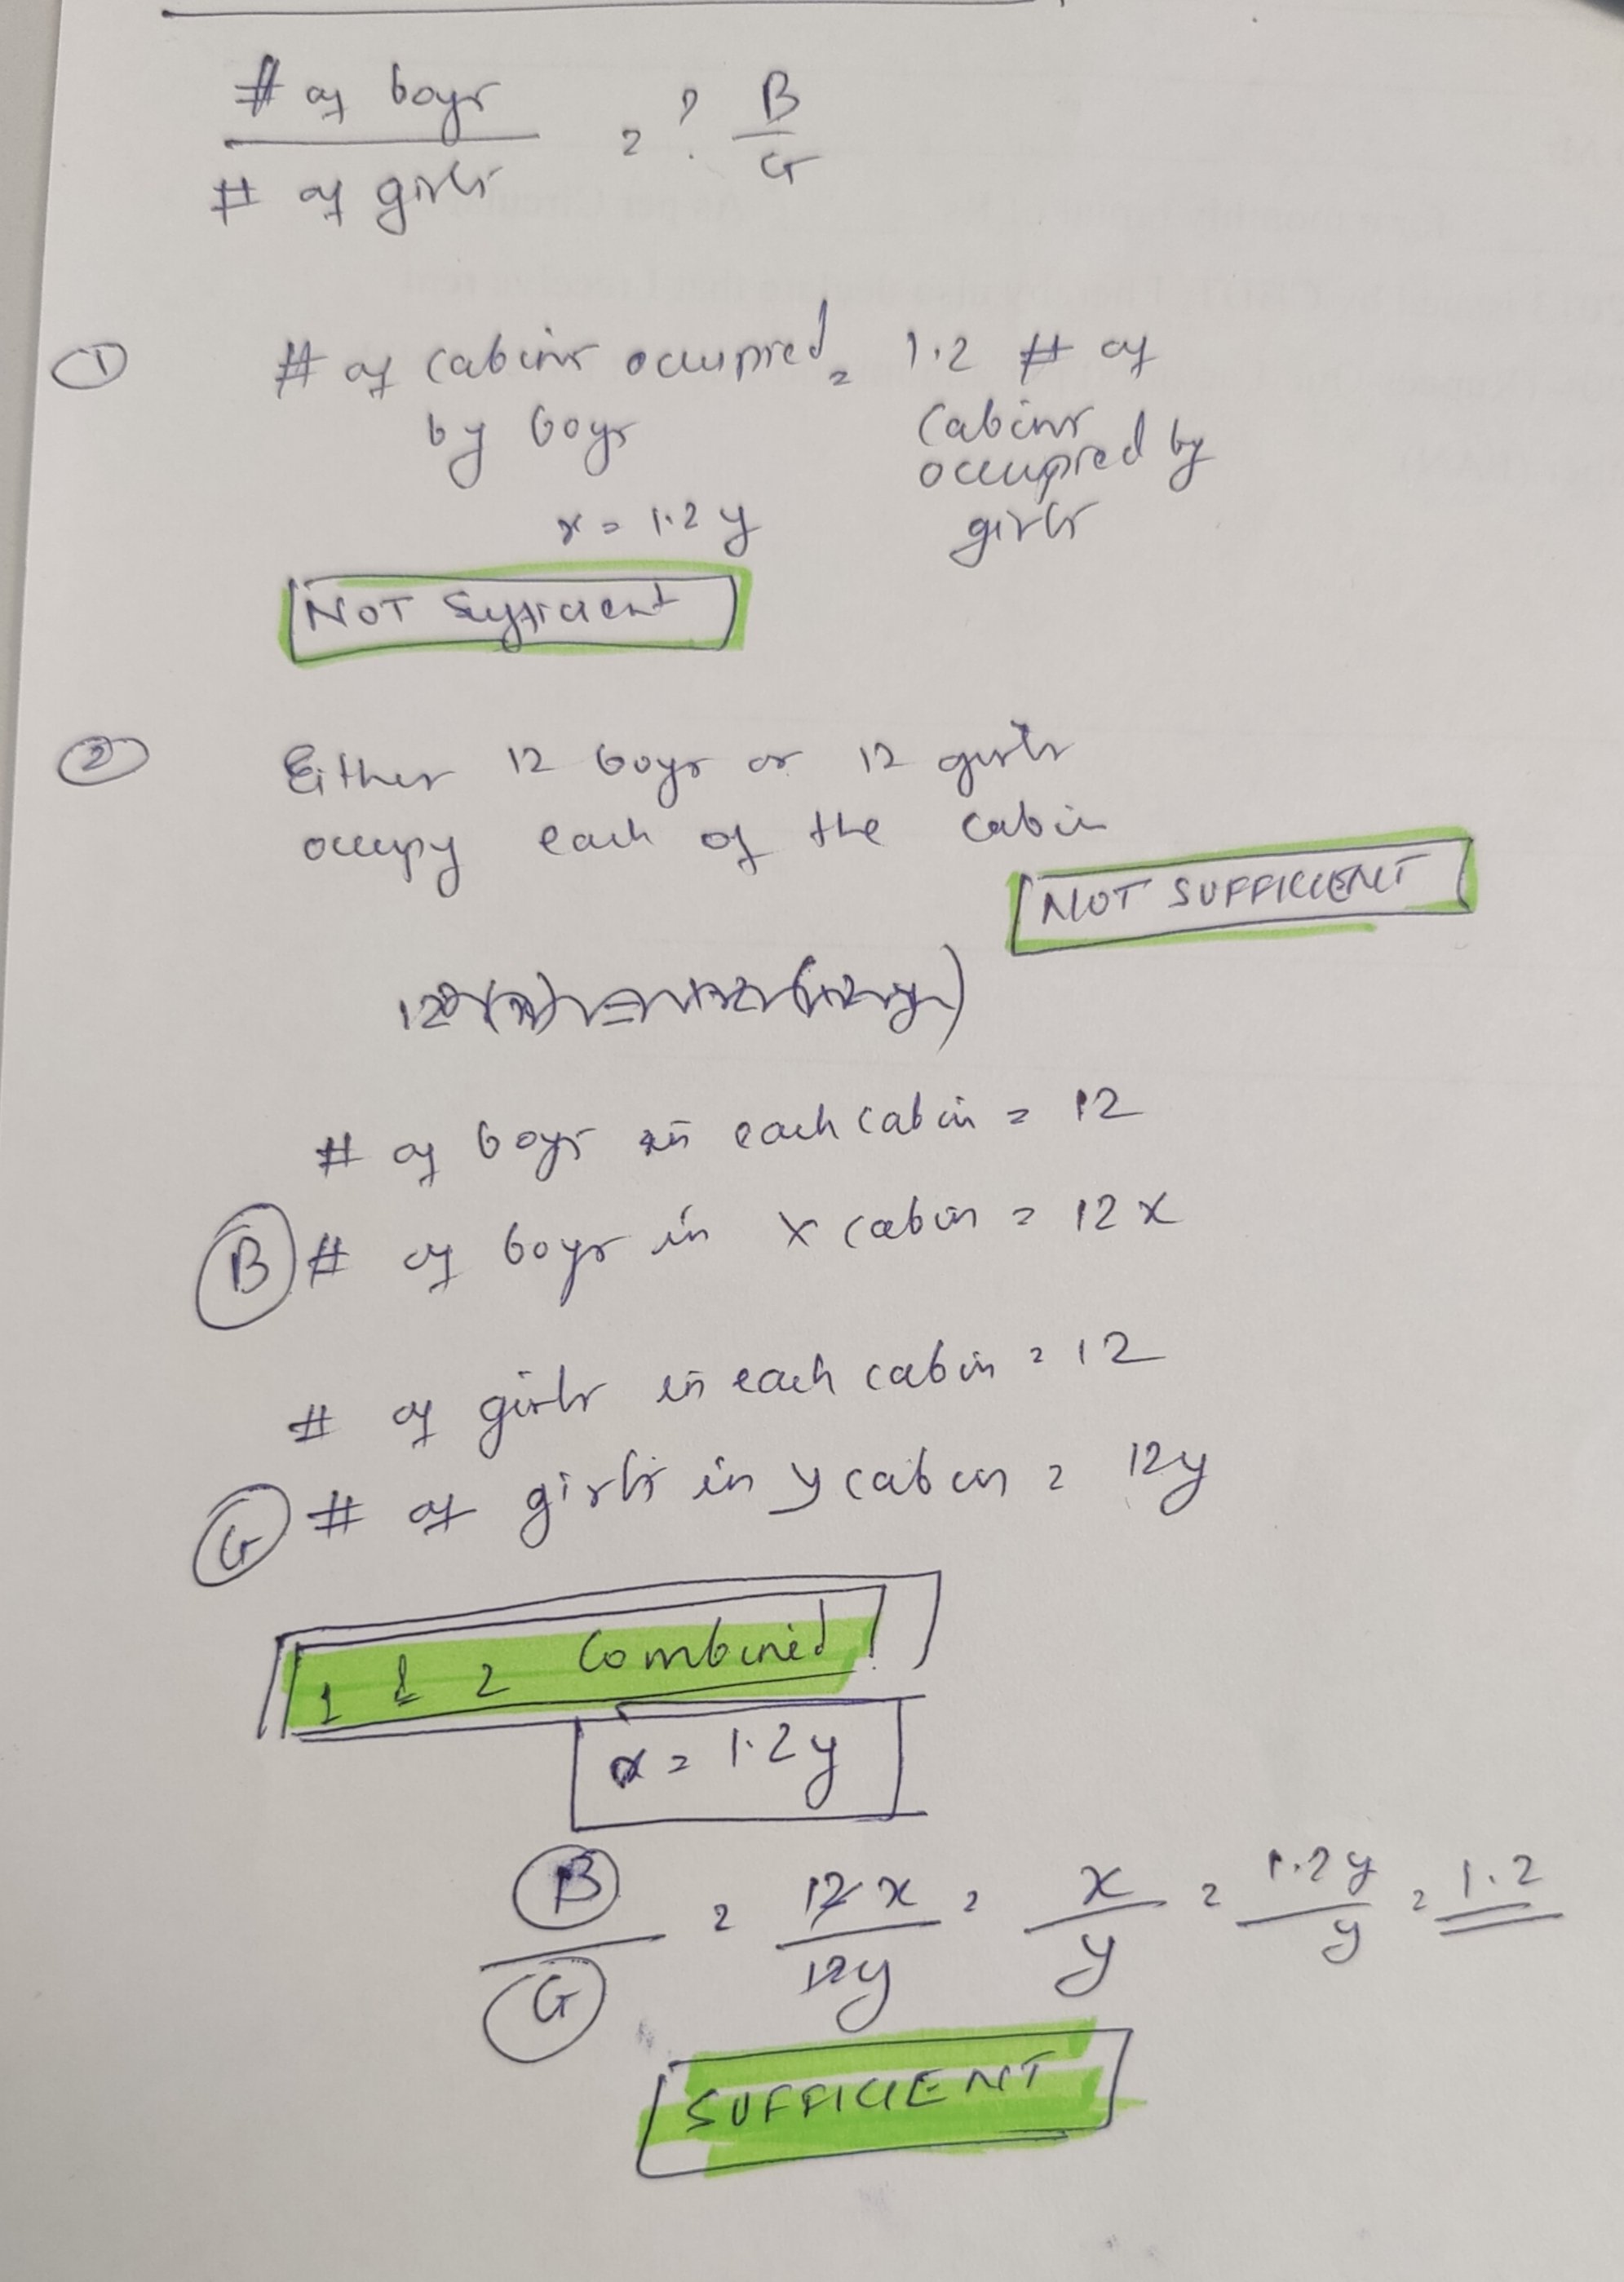 # of boys = ? B
# of girls G
① # of cabins occupied = 1.2 # of
by boys cabins
occupied by
x = 1.2 y girls
NOT Sufficient
② Either 12 boys or 12 girls
occupy each of the cabin
NOT SUFFICIENT
# of boys in each cabin = 12
B # of boys in x cabin = 12x
# of girls in each cabin = 12
G # of girls in y cabin = 12y
1 & 2 Combined
x = 1.2y
B = 12x = x = 1.2y = 1.2
G 12y y y
SUFFICIENT